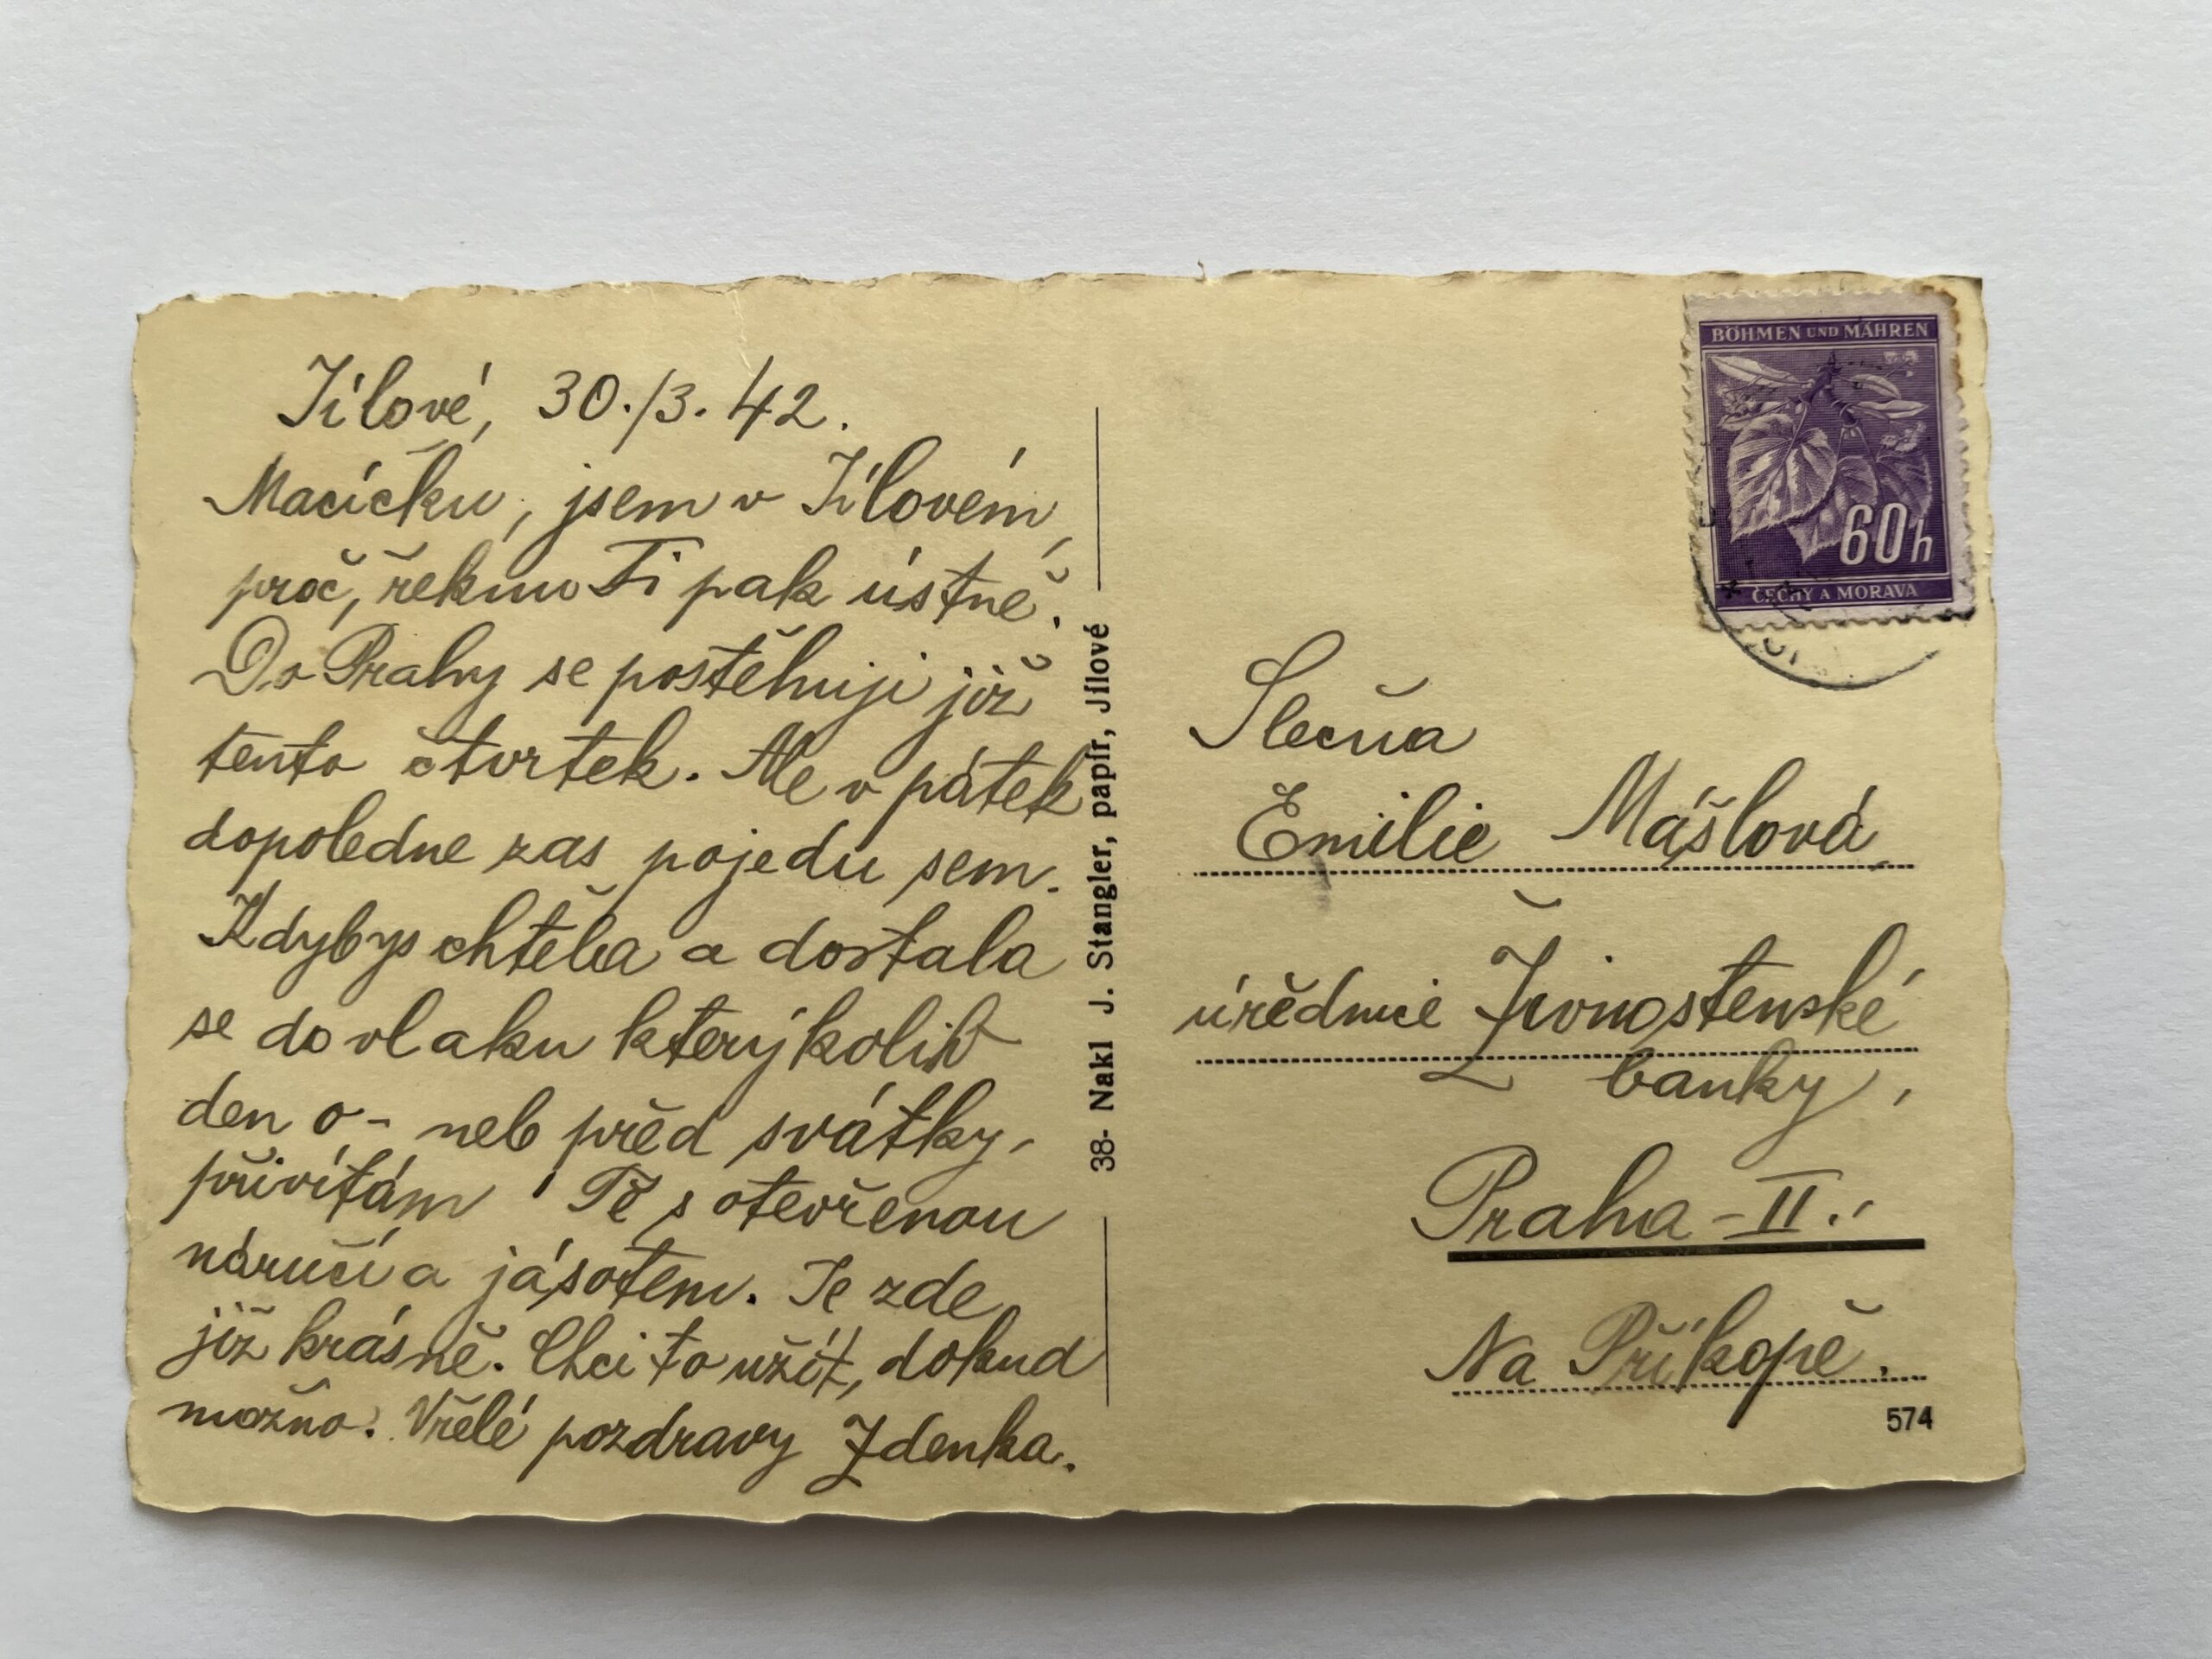 Jílové, 30./3. 42.
Macíčku, jsem v Jílovém,
proč, řeknu Ti pak ústně.
Do Prahy se postěhuji již
tento čtvrtek. Ale v pátek
dopoledne zas pojedu sem.
Kdybys chtěla a dostala
se do vlaku kterýkoliv
den o- neb před svátky,
přivítám Tě s otevřenou
náručí a jásotem. Je zde
již krásně. Chci to užít, dokud
možno. Vřelé pozdravy Zdenka.
38- Nakl J. Stangler, papír, Jílové
BÖHMEN UND MÄHREN
60h
ČECHY A MORAVA
Slečna
Emilie Mášlová
úřednice Živnostenské
banky,
Praha-II.
Na Příkopě.
574